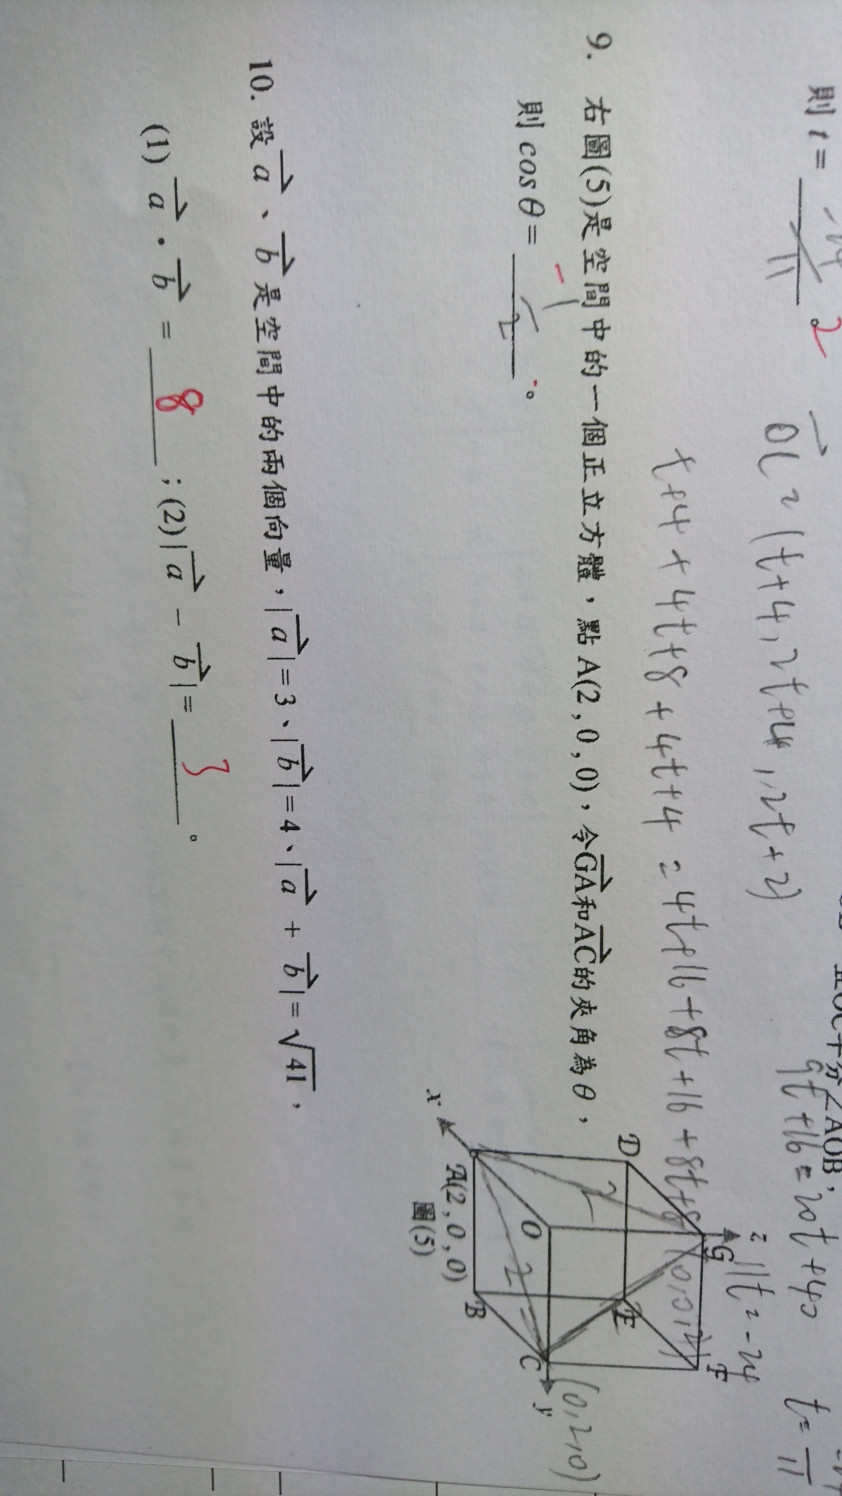 則 t = -24/11 2
OC = (t+4, 2t+4, 2t+2)
t+4+4t+8+4t+4 = 4t+16+8t+16+8t+8
9t+16=20t+40
11t=-24
9. 右圖(5)是空間中的一個正立方體，點 A(2,0,0)，令GA和AC的夾角為θ，
則 cosθ= -1/2 。
D
G
z
(0,0,2)
E
F
O
x
A(2,0,0)
B
C
y
(0,2,0)
圖(5)
10. 設 a 、 b 是空間中的兩個向量，| a |=3、| b |=4、| a + b |=√41，
(1) a · b = 8 ；(2)| a - b |= 3 。